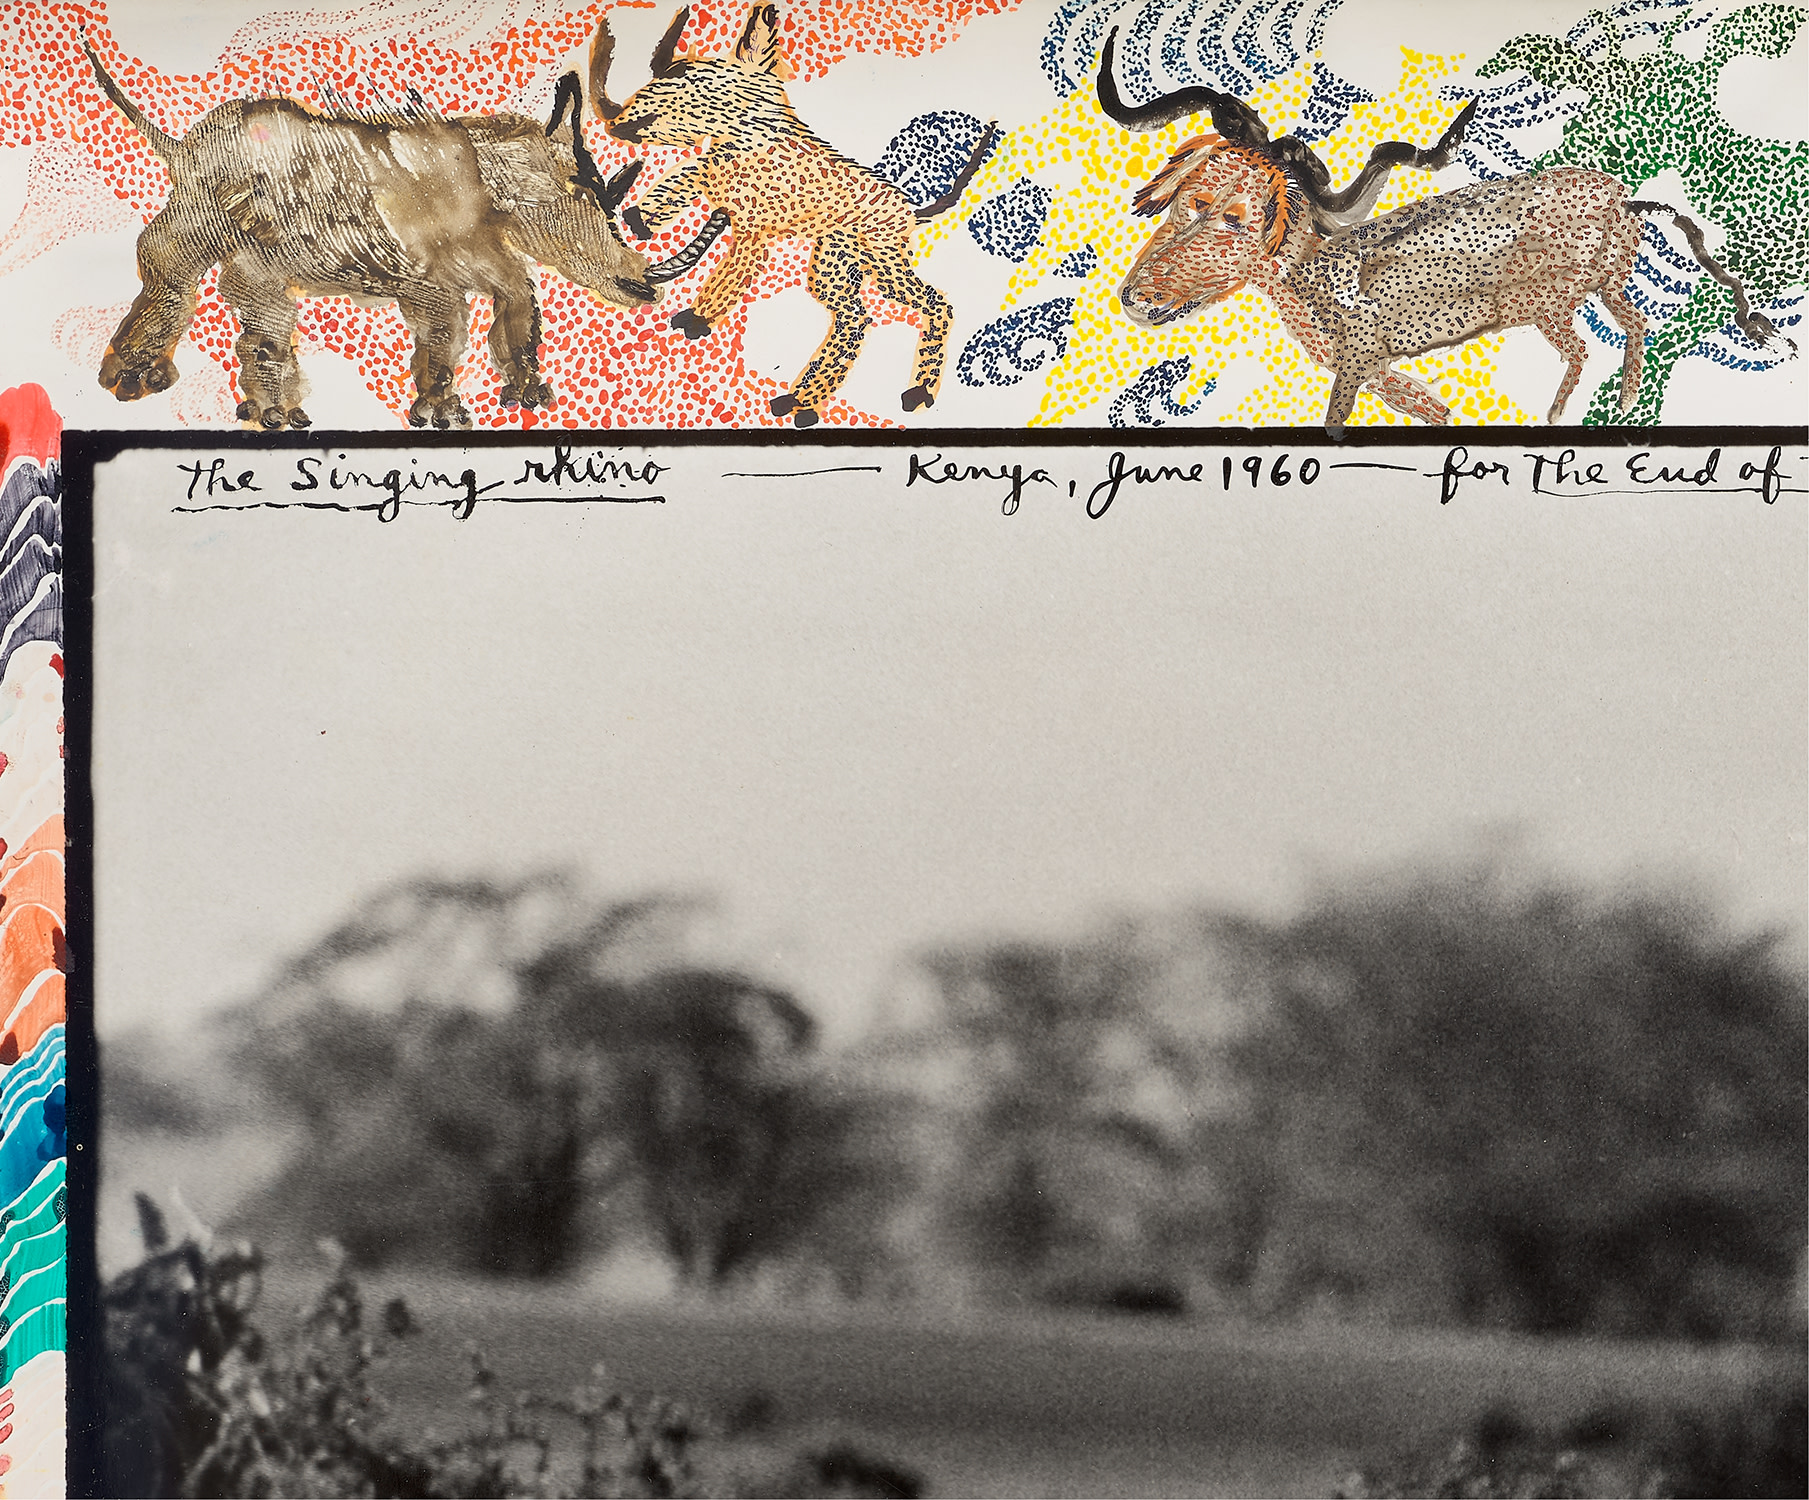 The Singing rhino — Kenya, June 1960 — for The End of